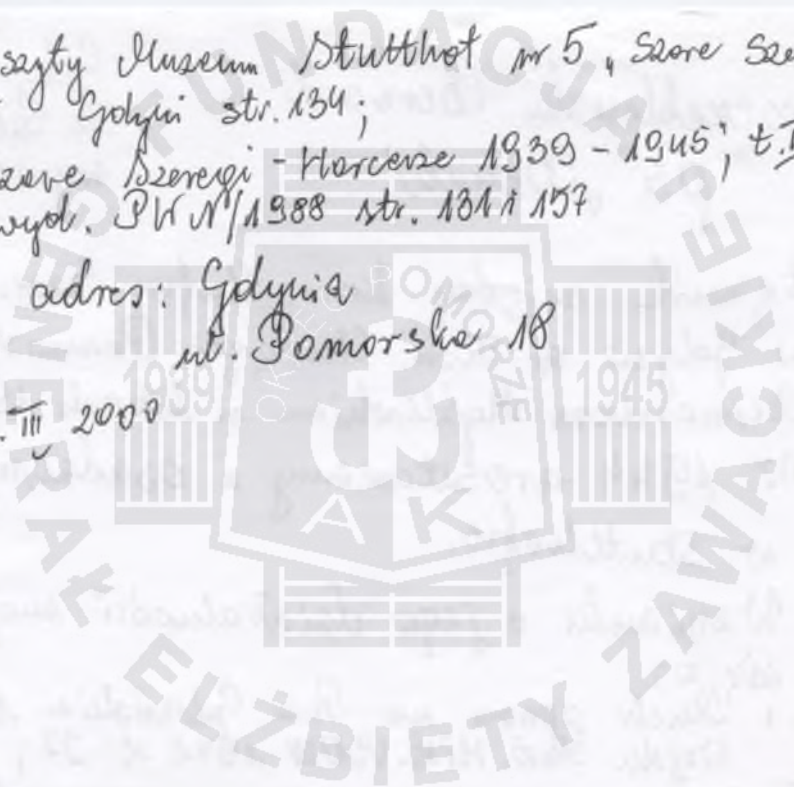 szyty Muzeum Stutthof nr 5 „Szare Sze
Gdyni str. 134;
zare Szeregi - Harcerze 1939 - 1945; t. I
wyd. PWN/1988 str. 131 i 157
adres: Gdynia
ul. Pomorska 18
. III 2000
FUNDACJA GENERAŁ ELŻBIETY ZAWACKIEJ
OKRĘG POMORZE
1939 1945
AK